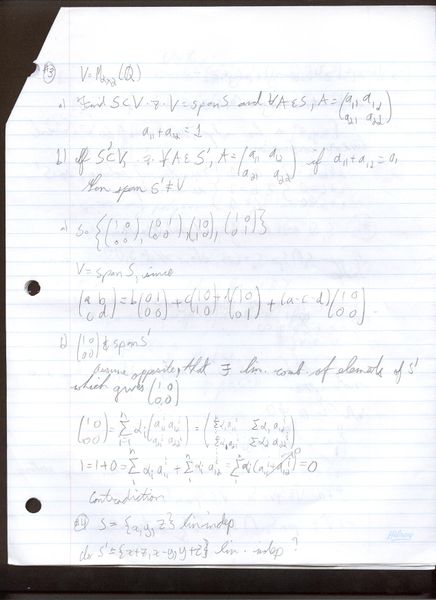 #3) V = M₂ₓ₂(Q)
a) Find S⊂V ·z· V = span S and ∀A∈S, A = (a₁₁ a₁₂ / a₂₁ a₂₂)
a₁₁ + a₁₂ = 1
b) If S'⊂V, ·z· ∀A∈S', A = (a₁₁ a₁₂ / a₂₁ a₂₂) if a₁₁ + a₁₂ = 0,
then span S' ≠ V
a) S = {(1 0 / 0 0), (0 1 / 0 0), (1 0 / 1 0), (1 0 / 0 1)}
V = span S, since
(a b / c d) = b(0 1 / 0 0) + c(1 0 / 1 0) + d(1 0 / 0 1) + (a-c-d)(1 0 / 0 0).
b) (1 0 / 0 0) ∉ span S'
Assume opposite, that ∃ lin. comb. of elements of S'
which gives (1 0 / 0 0)
(1 0 / 0 0) = Σ αᵢ (a₁₁ⁱ a₁₂ⁱ / a₂₁ⁱ a₂₂ⁱ) = (Σαᵢa₁₁ⁱ Σαᵢa₁₂ⁱ / Σαᵢa₂₁ⁱ Σαᵢa₂₂ⁱ)
1 = 1+0 = Σ αᵢ a₁₁ⁱ + Σ αᵢ a₁₂ⁱ = Σ αᵢ (a₁₁ⁱ + a₁₂ⁱ) = 0
Contradiction
#4 S = {x, y, z} lin indep
Is S' = {x+z, x-y, y+z} lin. indep?
Hilroy